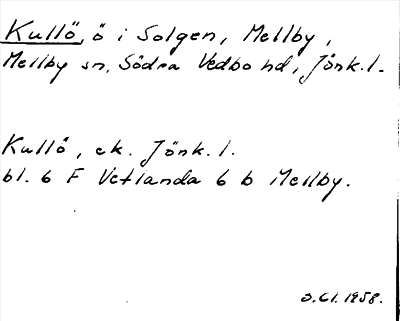 Kullö, ö i Solgen, Mellby,
Mellby sn, Södra Vedbo hd, Jönk. l.
Kullö, ek. Jönk. l.
bl. 6 F Vetlanda 6 b Mellby.
1958.